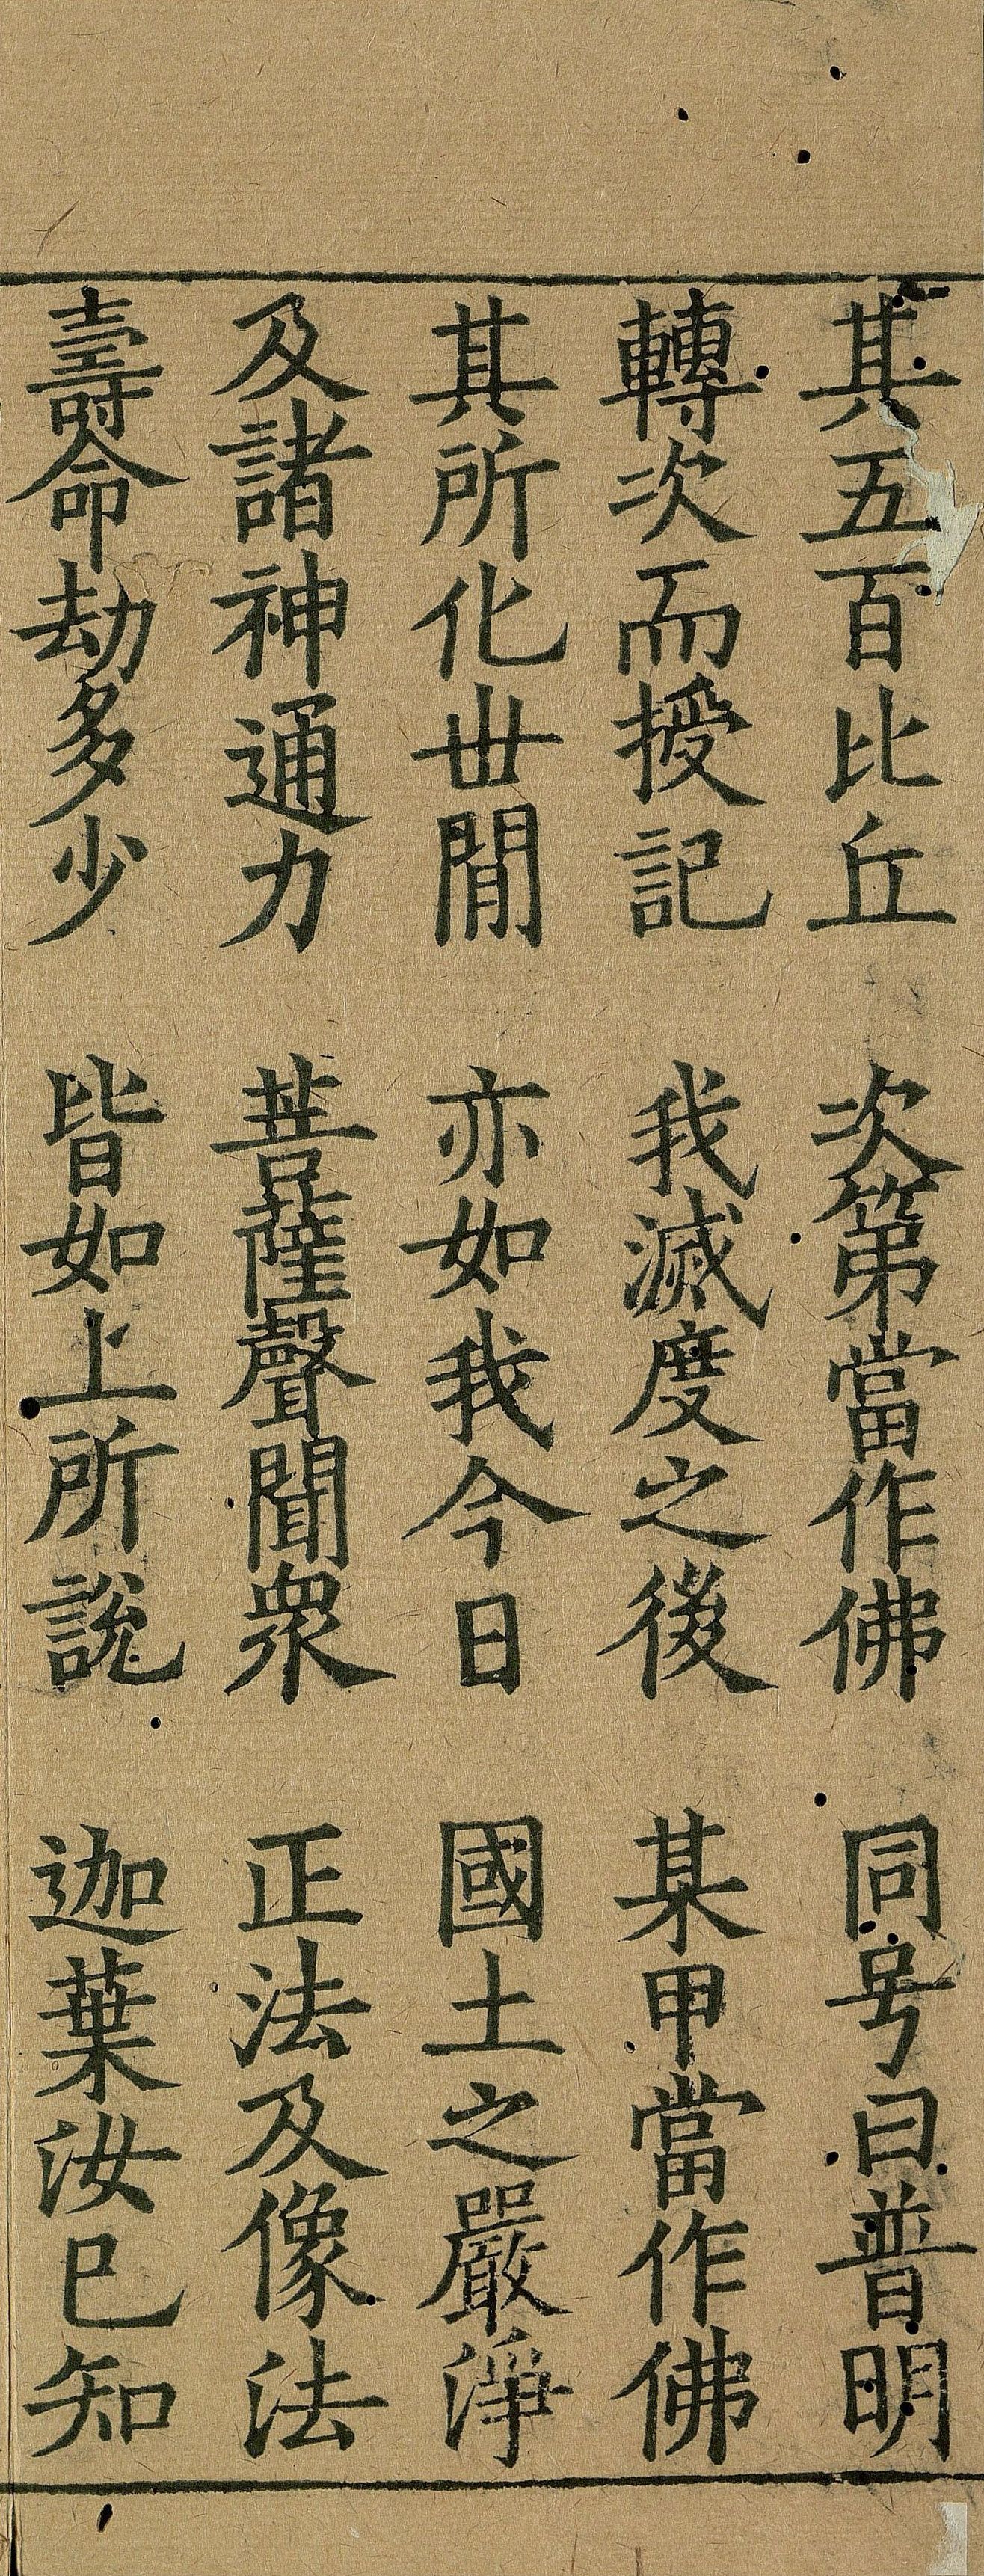 其五百比丘　次第當作佛　同号曰普明
轉次而授記　我滅度之後　某甲當作佛
其所化世閒　亦如我今日　國土之嚴淨
及諸神通力　菩薩聲聞衆　正法及像法
壽命劫多少　皆如上所說　迦葉汝已知